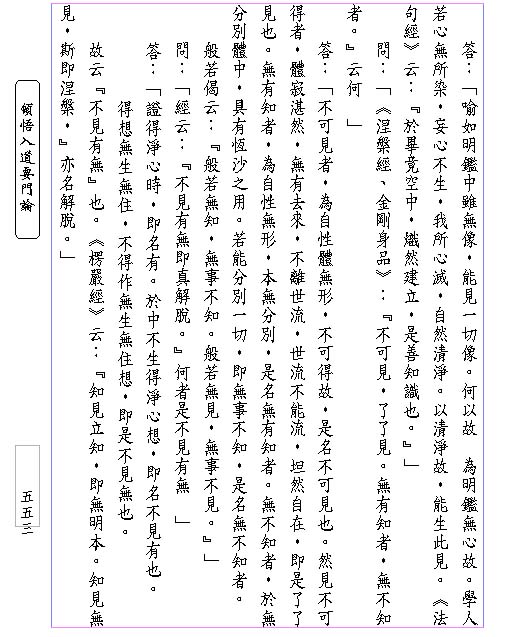 答：「喻如明鑑中雖無像，能見一切像。何以故　為明鑑無心故。學人
若心無所染，妄心不生，我所心滅，自然清淨。以清淨故，能生此見。《法
句經》云：『於畢竟空中，熾然建立，是善知識也。』」
問：「《涅槃經、金剛身品》：『不可見，了了見。無有知者，無不知
者。』云何　」
答：「不可見者，為自性體無形，不可得故，是名不可見也。然見不可
得者，體寂湛然，無有去來，不離世流，世流不能流，坦然自在，即是了了
見也。無有知者，為自性無形，本無分別，是名無有知者。無不知者，於無
分別體中，具有恆沙之用。若能分別一切，即無事不知，是名無不知者。
般若偈云：『般若無知，無事不知。般若無見，無事不見。』」
問：「經云：『不見有無即真解脫。』何者是不見有無　」
答：「證得淨心時，即名有。於中不生得淨心想，即名不見有也。
得想無生無住，不得作無生無住想，即是不見無也。
故云『不見有無』也。《楞嚴經》云：『知見立知，即無明本。知見無
見，斯即涅槃，』亦名解脫。」
頓悟入道要門論
五五三